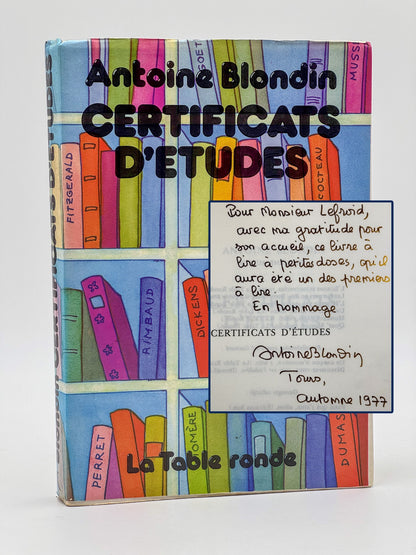 Antoine Blondin
CERTIFICATS
D'ETUDES
CERTIFICATS D'ETUDES
GOET
MUSS
FITZGERALD
COCTEAU
RIMBAUD
DICKENS
PERRET
HOMÈRE
DUMAS
La Table ronde
Pour Monsieur Lefroid,
avec ma gratitude pour
son accueil, ce livre à
lire à petites doses, qu'il
aura été un des premiers
à lire.
En hommage
CERTIFICATS D'ÉTUDES
Antoine Blondin
Tours,
Automne 1977